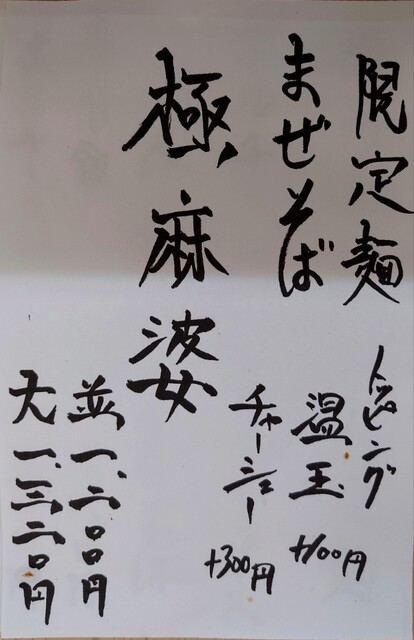 限定麺
まぜそば
極、麻婆
トッピング
温玉 +100円
チャーシュー +300円
並 一、二〇〇円
大 一、三二〇円